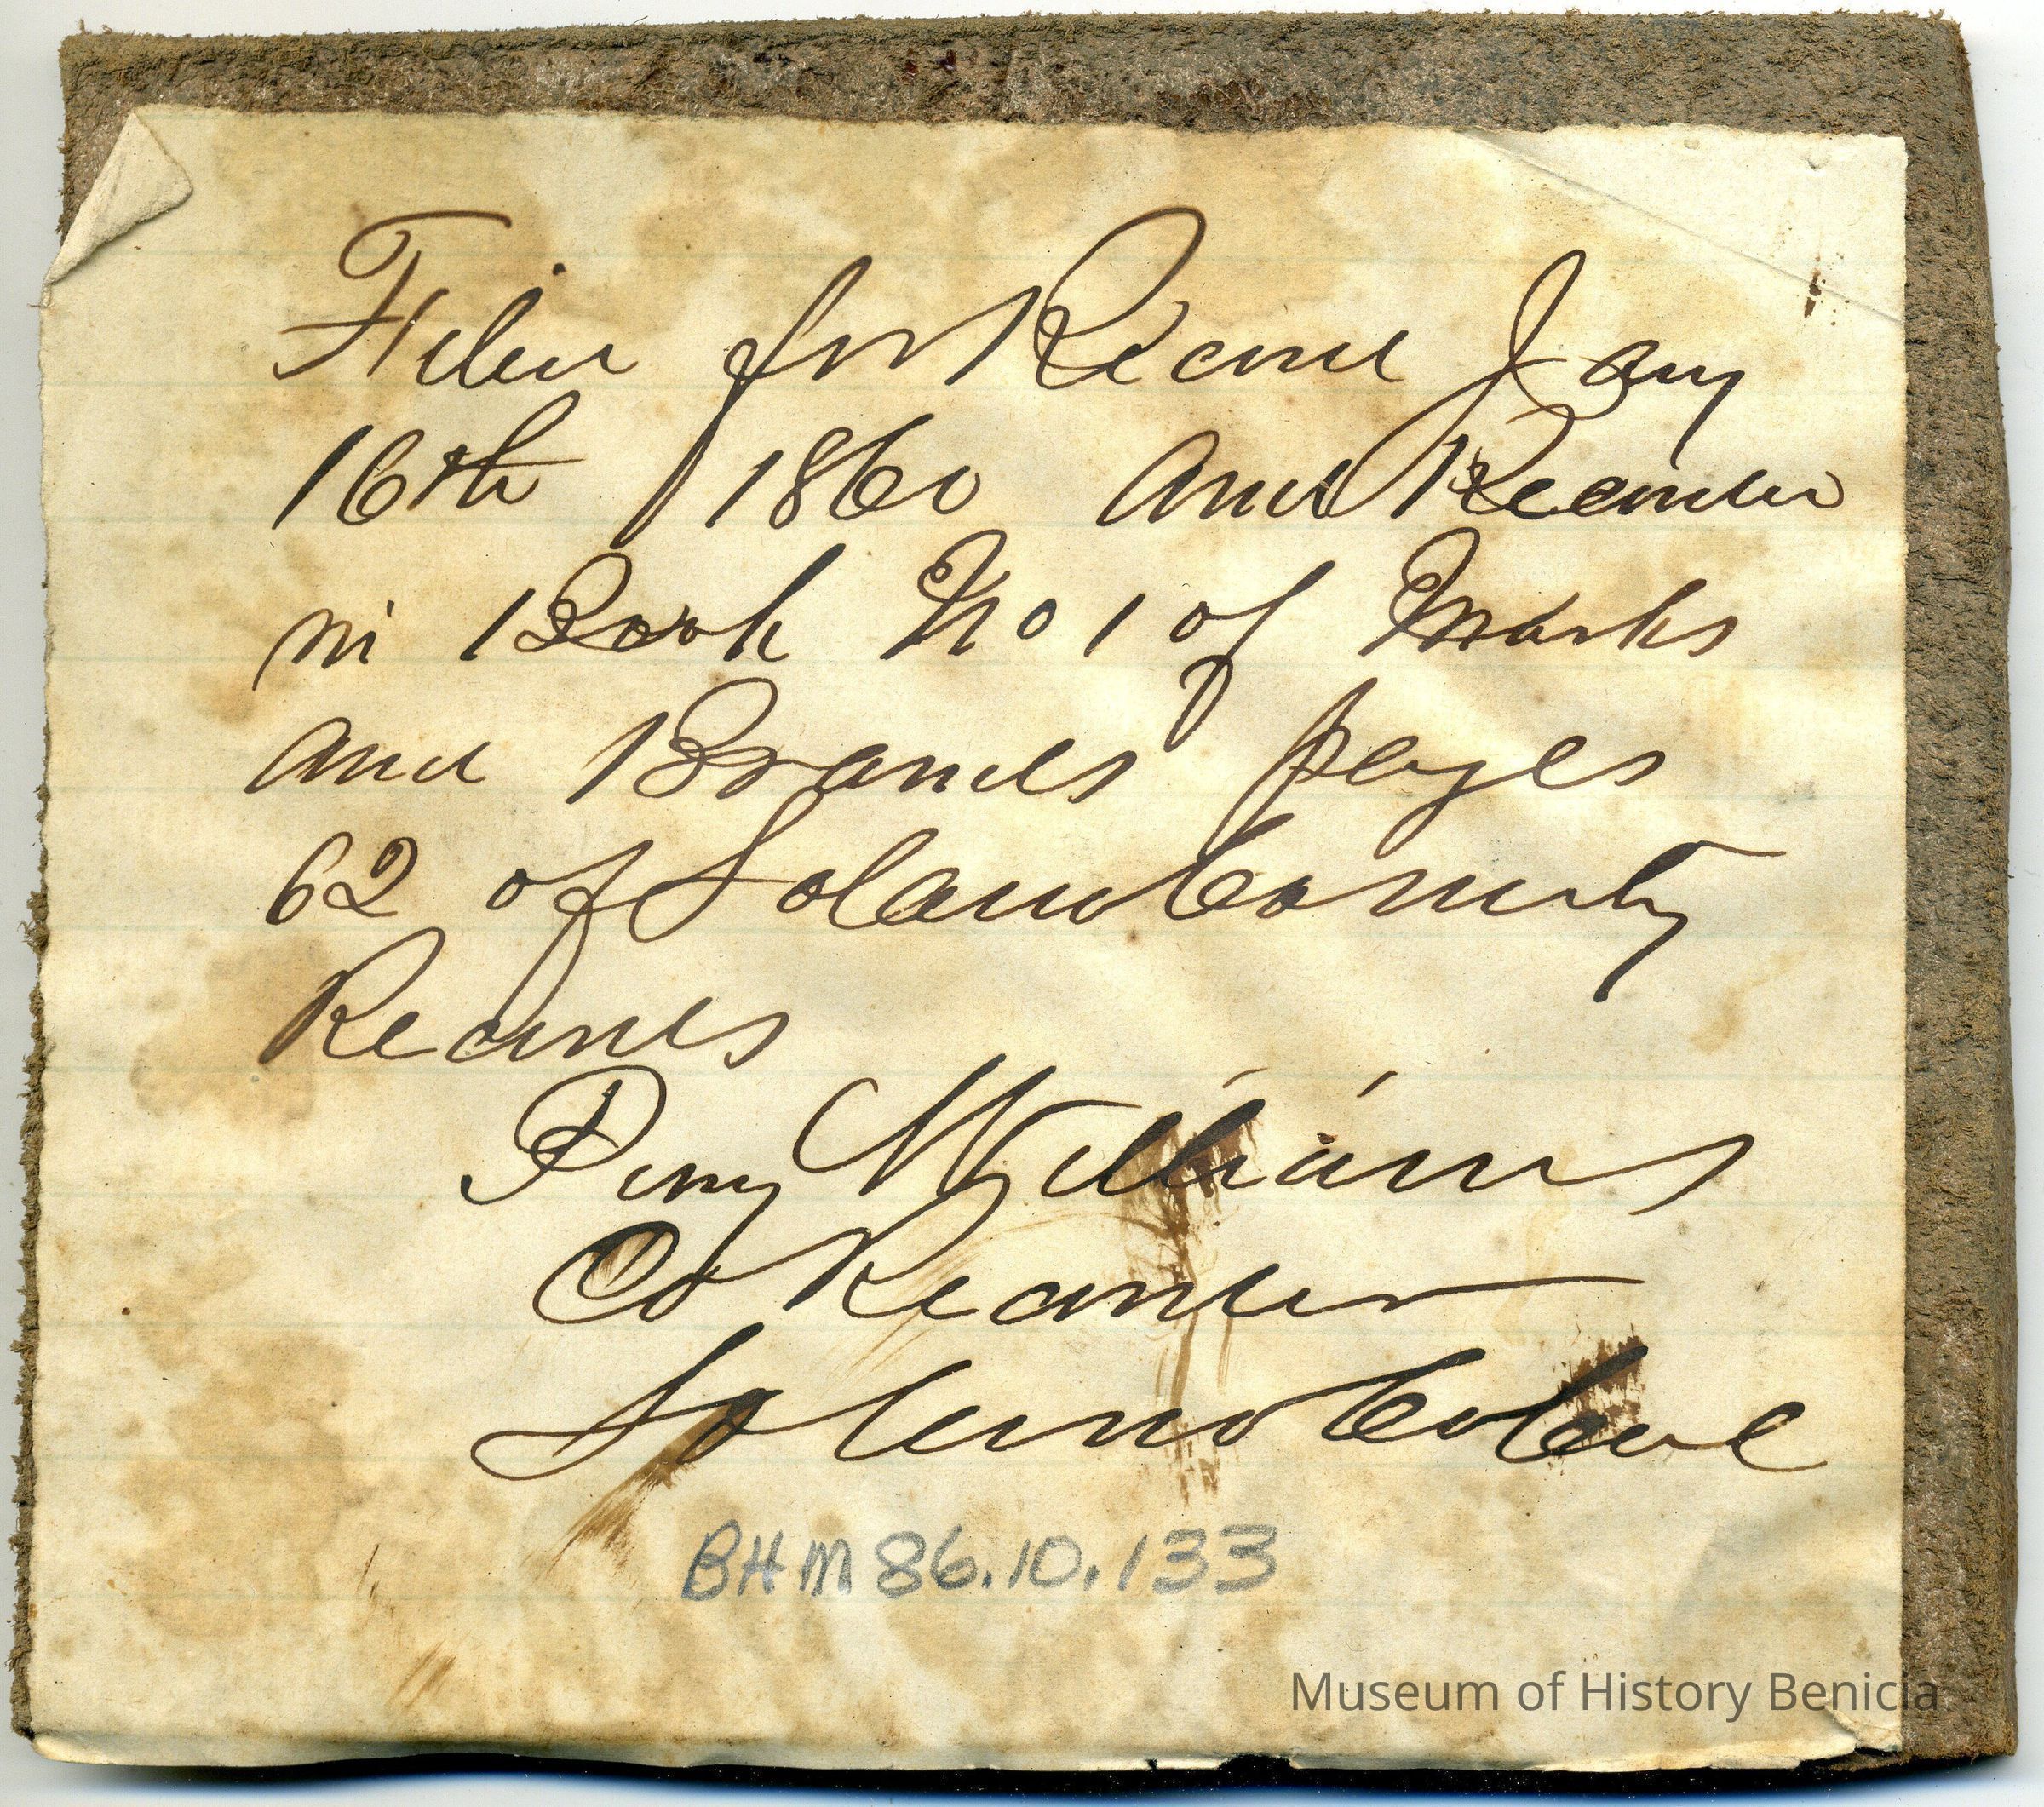 Filed for Record Jany
16th 1860 and Recorded
in Book No 1 of Marks
and Brands pages
62 of Solano County
Records
Perry Williams
Co Recorder
Solano Co Cal
BHM 86.10.133
Museum of History Benicia